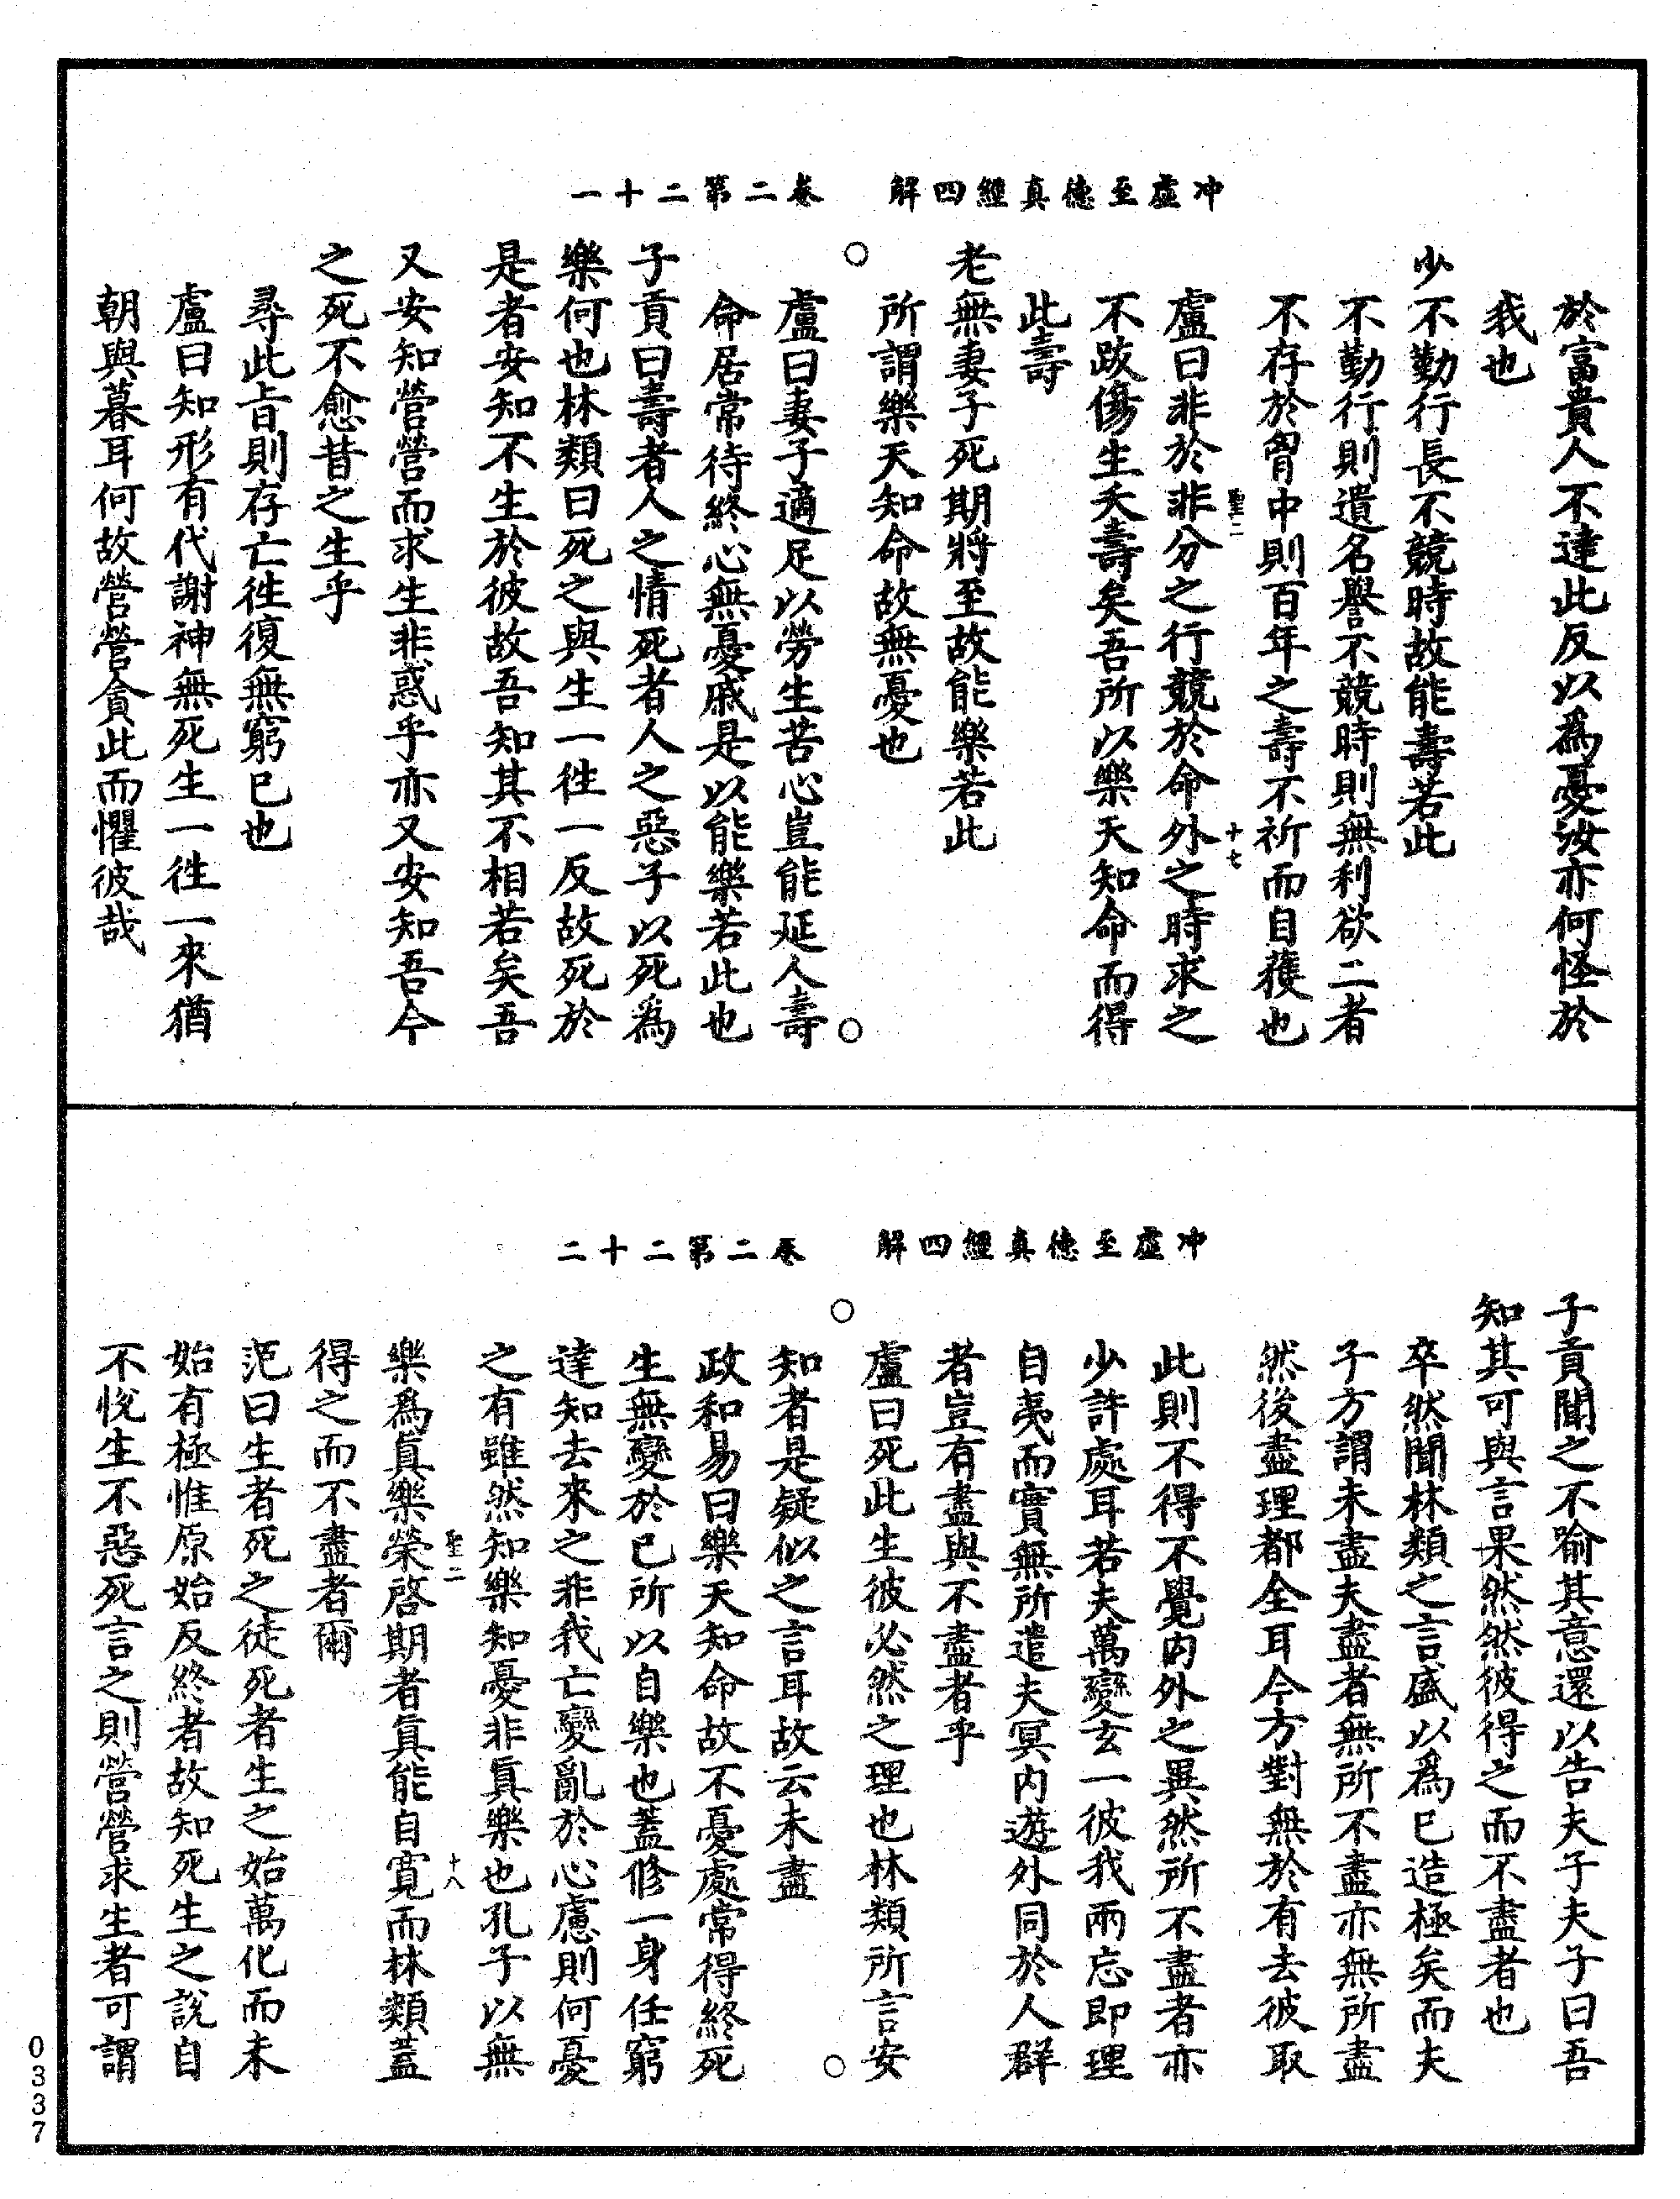 冲虛至德真經四解　卷二第二十一
於富貴人不達此反以爲憂汝亦何怪於
我也
少不勤行長不競時故能壽若此
不勤行則遺名譽不競時則無利欲二者
不存於胷中則百年之壽不祈而自獲也
聖二　十七
盧曰非於非分之行競於命外之時求之
不跂傷生夭壽矣吾所以樂天知命而得
此壽
老無妻子死期將至故能樂若此
所謂樂天知命故無憂也
盧曰妻子適足以勞生苦心豈能延人壽
命居常待終心無憂戚是以能樂若此也
子貢曰壽者人之情死者人之惡子以死爲
樂何也林類曰死之與生一徃一反故死於
是者安知不生於彼故吾知其不相若矣吾
又安知營營而求生非惑乎亦又安知吾今
之死不愈昔之生乎
尋此旨則存亡徃復無窮已也
盧曰知形有代謝神無死生一徃一來猶
朝與暮耳何故營營貪此而懼彼哉
冲虛至德真經四解　卷二第二十二
子貢聞之不喻其意還以告夫子夫子曰吾
知其可與言果然然彼得之而不盡者也
卒然聞林類之言盛以爲已造極矣而夫
子方謂未盡夫盡者無所不盡亦無所盡
然後盡理都全耳今方對無於有去彼取
此則不得不覺內外之異然所不盡者亦
少許處耳若夫萬變玄一彼我兩忘即理
自夷而實無所遣夫冥內遊外同於人群
者豈有盡與不盡者乎
盧曰死此生彼必然之理也林類所言安
知者是疑似之言耳故云未盡
政和易曰樂天知命故不憂處常得終死
生無變於已所以自樂也蓋修一身任窮
達知去來之非我亡變亂於心慮則何憂
之有雖然知樂知憂非眞樂也孔子以無
聖二　十八
樂爲眞樂榮啓期者眞能自寬而林類蓋
得之而不盡者爾
范曰生者死之徒死者生之始萬化而未
始有極惟原始反終者故知死生之說自
不悅生不惡死言之則營營求生者可謂
0337